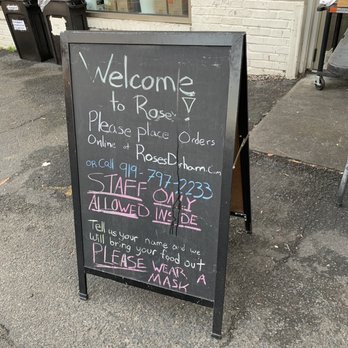 Welcome
to Rose's
Please place Orders
Online at RosesDurham.Com
or Call 919-797-2233
STAFF ONLY
ALLOWED INSIDE
Tell us your name and we
will bring your food out
PLEASE WEAR A
MASK